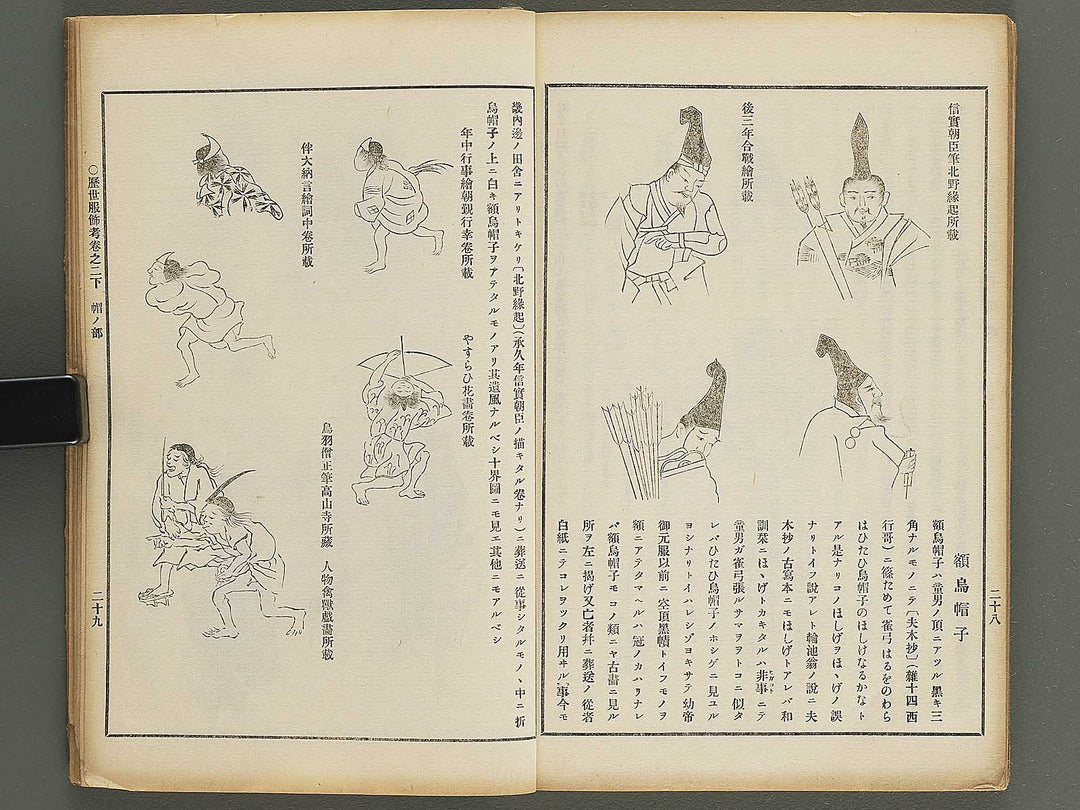 信實朝臣筆北野緣起所載
後三年合戰繪所載
額烏帽子
額烏帽子ハ童男ノ頂ニアツル黑キ三
角ナルモノニテ〔夫木抄〕(雜十四西
行哥)ニ篠ためて雀弓はるをのわら
はひたひ烏帽子のほしけなるかなト
アル是ナリコノほしげヲほゝげノ誤
ナリトイフ說アレト輪池翁ノ說ニ夫
木抄ノ古寫本ニモほしげトアレバ和
訓栞ニほゝげトカキタルハ非事ニテ
童男ガ雀弓張ルサマヲヲトコニ似タ
レバひたひ烏帽子ノホシゲニ見ユル
ヨシナリトイハレシゾヨキサテ幼帝
御元服以前ニ空頂黑幘トイフモノヲ
額ニアテタマヘルハ冠ノカハリナレ
バ額烏帽子モコノ類ニヤ古畵ニ見ル
所ヲ左ニ揭げ又亡者幷ニ葬送ノ從者
白紙ニテコレヲツクリ用ヰル事今モ
二十八
畿內邊ノ田舍ニアリトキケリ〔北野緣起〕(承久年信實朝臣ノ描キタル卷ナリ)ニ葬送ニ從事シタルモノヽ中ニ折
烏帽子ノ上ニ白キ額烏帽子ヲアテタルモノアリ其遺風ナルベシ十界圖ニモ見エ其他ニモアルベシ
年中行事繪朝覲行幸卷所載
やすらひ花畵卷所載
伴大納言繪詞中卷所載
鳥羽僧正筆高山寺所藏 人物禽獸戲畵所載
○歷世服飾考卷之二下 帽ノ部
二十九